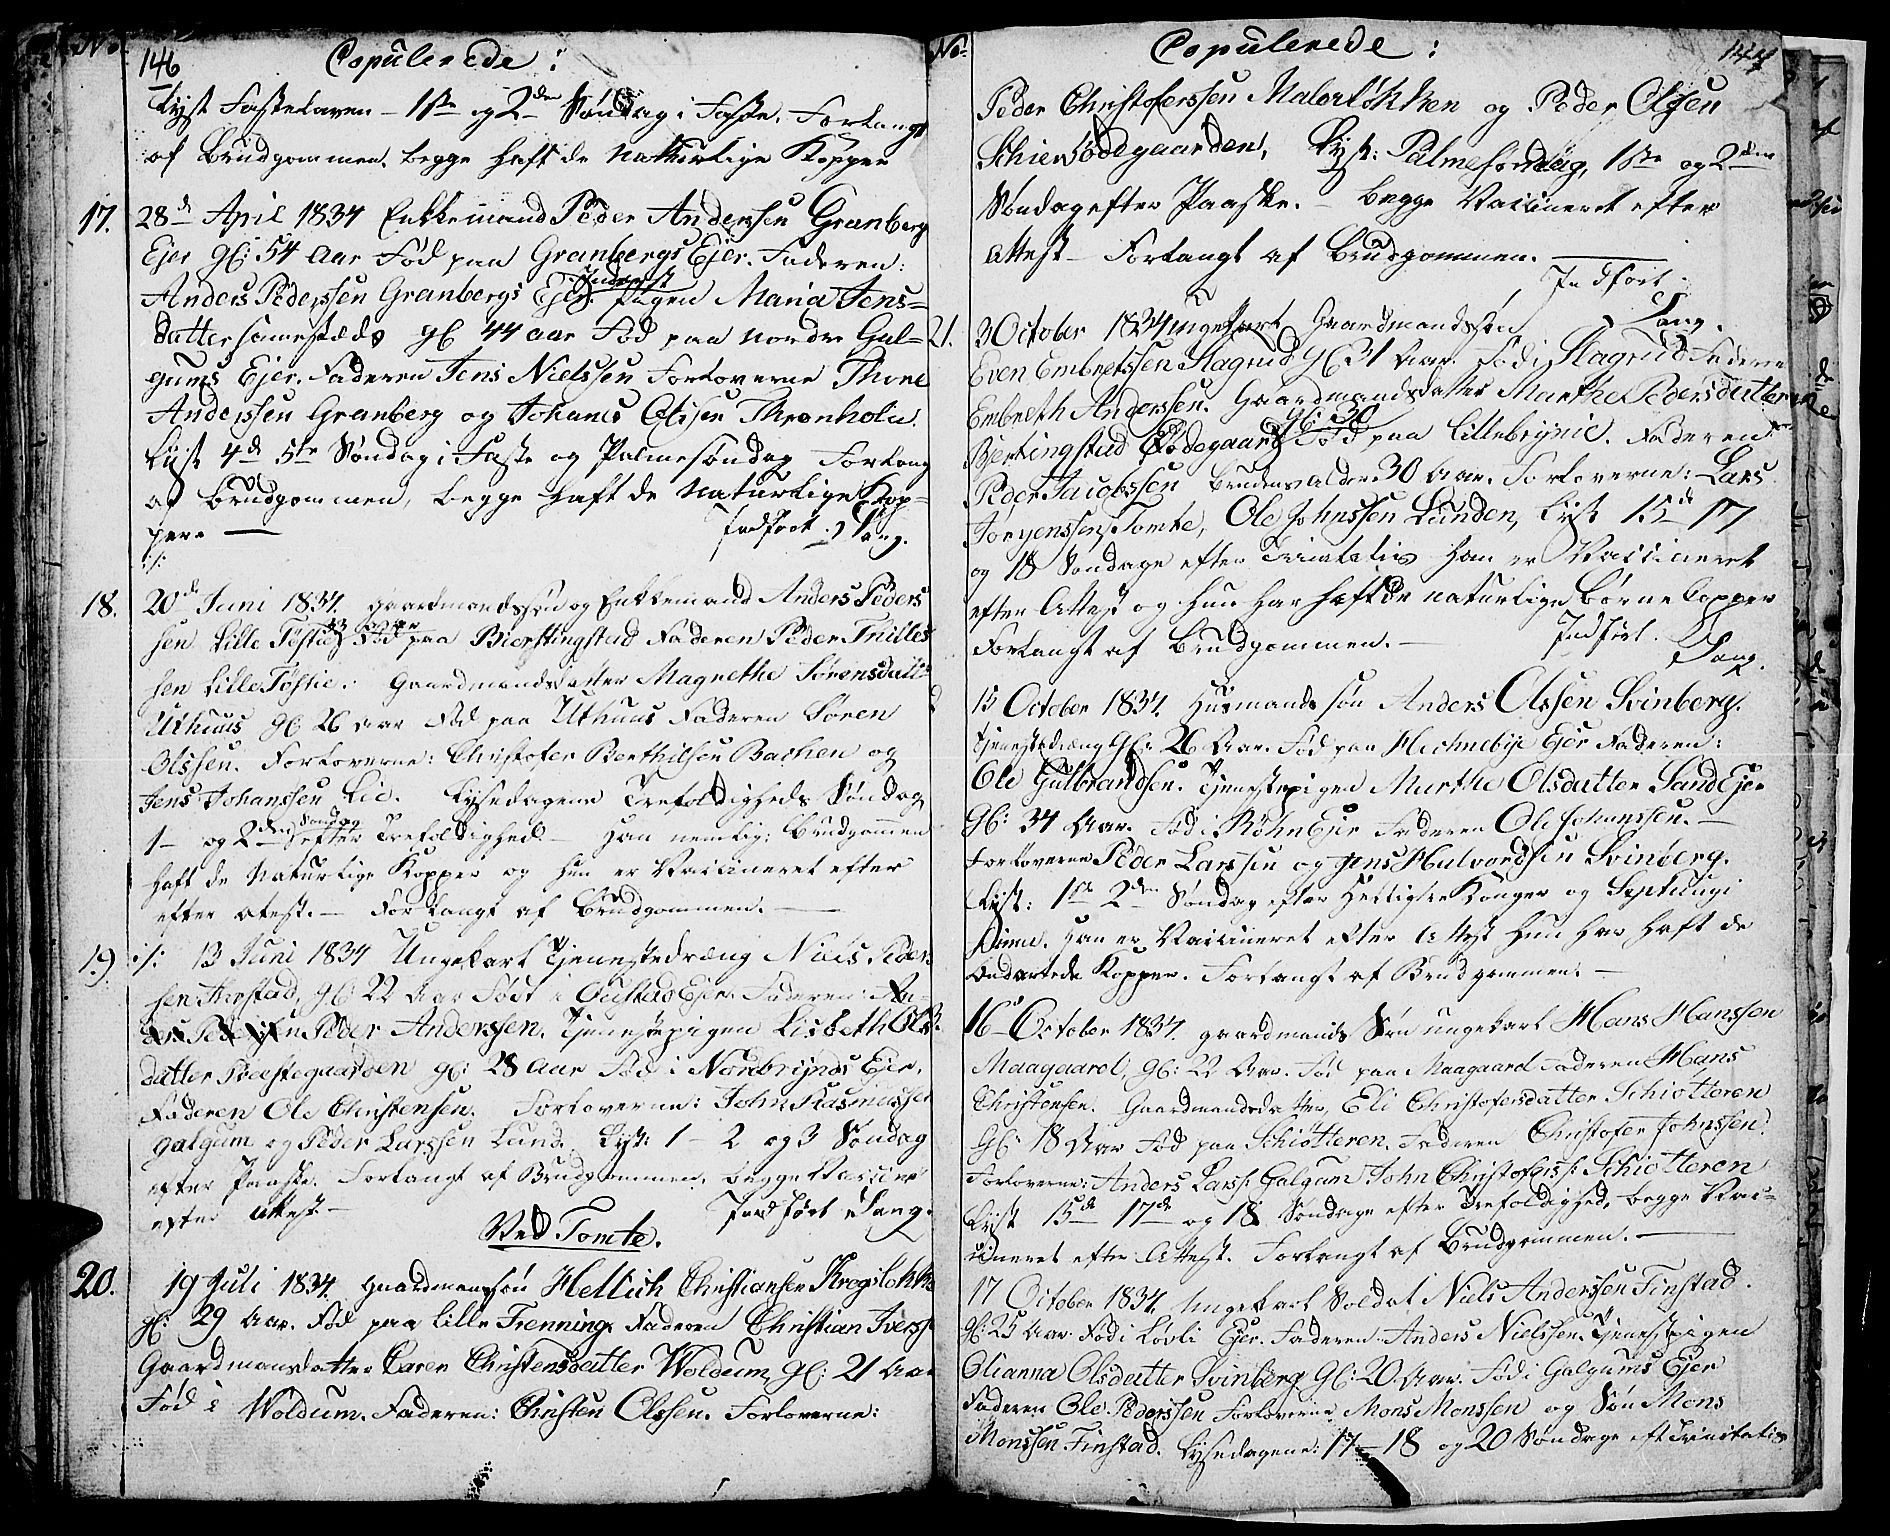 No.
146
Copulerede:
Lyst Fastelaven – 1ste og 2den Søndag i Faste. Forlangt
af Brudgommen. begge haft de Naturlige Kopper
17. 28d April 1834 Enkkemand Peder Anderssen Granberg
Ejer gl: 54 Aar Fød paa Granbergs Ejer. Faderen:
Anders Pederssen Granbergs Ejer. Pigen Maria Jens=
datter sammesteds gl 44 aar Fød paa nordre Gal=
gums Ejer. Faderen Jens Nielssen Forloverne Thore
Anderssen Granberg og Johanes Olssen Thronholen.
Lyst 4de 5te Søndag i Faste og Palmesøndag Forlang
af Brudgommen, begge haft de Naturlige Kop=
pere — Indført Lang.
18. 20d Juni 1834. Gaardmandssøn og Enkkemand Anders Peders
sen Lille Tøstie Fød paa Bierkingstad Faderen Peder Trulls
sen Lille Tøstie. Gaardmandsdatter Magrethe Sørensdatt
Uthuus gl 26 aar Fød paa Uthuus Faderen Søren
Olssen. Forloverne: Christofer Berthilsen Bachen og
Jens Johanssen Lie. Lysedagene Trefoldigheds Søndag
1– og 2den Søndag efter Trefoldighed – Han nemlig: Brudgommen
haft de Naturlige Kopper og hun er Vaccineret efter
efter Atest. – Forlangt af Brudgommen. —
19) ./. 13 Juni 1834 Ungekarl Tjenestedreng Niels Peders
sen gl: 22 Aar Født i Ejer. Faderen:
Peder Anderssen. Tjenestepigen Lisbeth Ols
datter Præstegaarden gl: 28 Aar Fød i Nordbrynds Ejer.
Faderen Ole Christensen. Forloverne: John Rasmussen
Galgum og Peder Larssen Lund. Lyst: 1 – 2 og 3 Søndag
efter Paaske. Forlangt af Brudgommen, begge Vaccine
efter Attest – Indført Lang.
Ved Tomte.
20. 19 Juli 1834. Gaardmandssøn Hellich Christiansen Krogsløkke
gl: 29 Aar. Fød paa Lille Frenning. Faderen Christian Iverss
Gaardmansdatter Caren Christensdatter Woldum, gl: 21 Aar
Fød i Woldum. Faderen: Christen Olssen. Forloverne:
No.
Copulerede:
147
Peder Christoferssen Malerløkken og Peder Olssen
Schiersødegaarden, Lyst: Palmesøndag, 1ste og 2den
Søndag efter Paaske. – begge Vaccineret efter
Attest – Forlangt af Brudgommen. —
Indført
Lang.
21. 3 October 1834 ungekarl Gaardmandssøn
Even Embretssen Slagrud gl 31 Aar. Fød i Slagrud Fadere
Embreth Anderssen. Gaardmandsdatter Marthe Pedersdatter
gl: 30
Bjerkingstad Ødegaard Fød paa Lillebrynie. Faderen
Peder Jacobssen Brudens alder 30 Aar. Forloverne: Lars
Jorgenssen Tomte, Ole Johnssen Lunden, Lyst 15de 17
og 18 Søndage efter Trinitatis Han er Vaccineret
efter Attest og Hun har haft de naturlige Børne Kopper
Forlangt af Brudgommen. – Indført.
Lang.
15 October 1834. Husmandssøn Anders Olssen Svinberg.
Tjenestedreng gl: 26 Aar. Fød paa Mechnebye Ejer Faderen:
Ole Gulbrandsen. Tjenestepigen Marthe Olsdatter Sand Ejer
gl: 34 Aar. Fød i Røhn Ejer Faderen Ole Johanssen. –
Forloverne Peder Larssen og Jens Halvordsen Svinberg.
Lyst: 1ste 2den Søndag efter Hellig tre Konger og Septuagi
sima. Han er Vaccineret efter Attest Hun har haft de
Kopper. Forlangt af Brudgommen. –
16 – October 1834. Gaardmands Søn ungekarl Hans Hanssen
Maagaard, gl: 22 Aar. Fød paa Maagaard Faderen Hans
Christensen. Gaardmandsdatter, Eli Christofersdatter Schiøtteren
gl: 18 Aar Fød paa Schiøtteren, Faderen Christofer Johnssen.
Forloverne: Anders Larss: Galgum John Christofers: Schiøtteren
Lyst 15de 17de og 18 Søndage efter Trefoldighed, begge Vac=
cineret efter Attest. Forlangt af Brudgommen. —
17 October 1834. Ungekarl Soldat Niels Anderssen Finstad.
gl: 25 Aar. Fød i Løvli Ejer. Faderen Anders Nielssen. Tjenestpigen
Olianna Olsdatter Svinberg gl: 20 Aar. Fød i Galgums Ejer
Faderen Ole Pederssen Forloverne Mons Monssen og Søn Mons
Monssen Finstad. Lysedagene: 17 – 18 og 20 Søndage eft Trinitatis